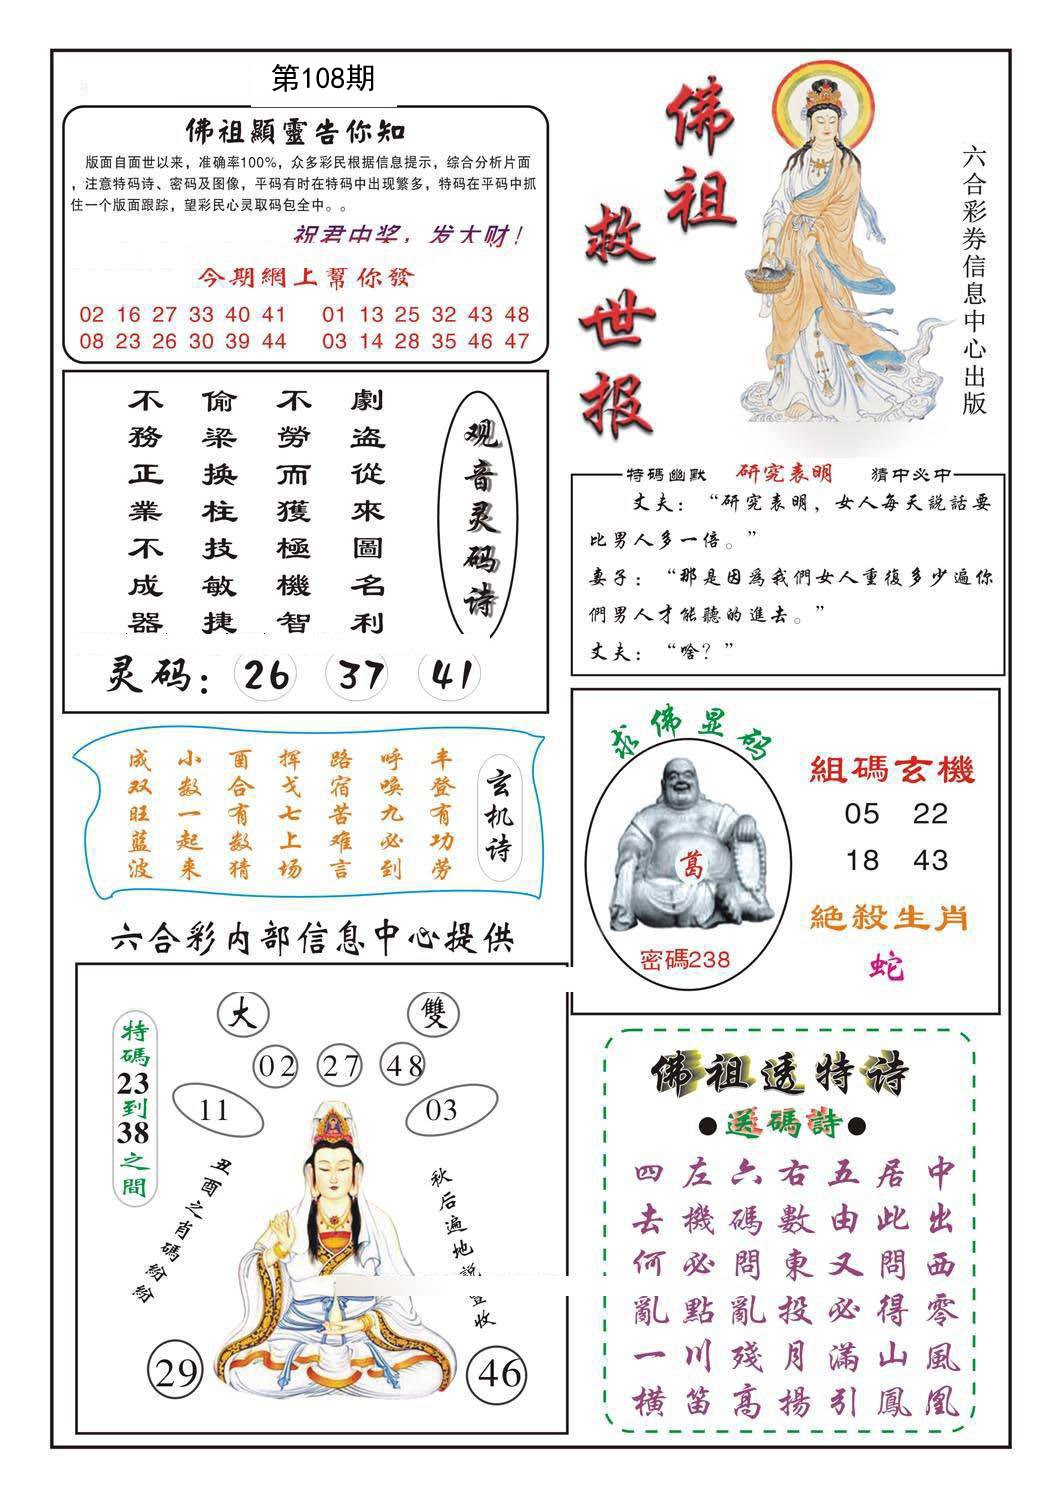 第108期
佛祖顯靈告你知
版面自面世以来，准确率100%，众多彩民根据信息提示，综合分析片面
，注意特码诗、密码及图像，平码有时在特码中出现繁多，特码在平码中抓
住一个版面跟踪，望彩民心灵取码包全中。。
祝君中奖，发大财！
今期網上幫你發
02 16 27 33 40 41 01 13 25 32 43 48
08 23 26 30 39 44 03 14 28 35 46 47
佛祖
救世报
六合彩券信息中心出版
观音灵码诗
劇盗從來圖名利
不勞而獲極機智
偷梁换柱技敏捷
不務正業不成器
灵码：26 37 41
特碼幽默 研究表明 猜中必中
丈夫：“研究表明，女人每天説話要
比男人多一倍。”
妻子：“那是因爲我們女人重復多少遍你
們男人才能聽的進去。”
丈夫：“啥？”
玄机诗
丰登有功劳
呼唤九必到
路宿苦难言
挥戈七上场
酉合有数猜
小数一起来
成双旺蓝波
求佛显码
葛
密碼238
組碼玄機
05 22
18 43
絶殺生肖
蛇
六合彩内部信息中心提供
大 雙
02 27 48
11 03
特碼23到38之間
丑酉之肖碼紛紛
秋后遍地説豐收
29 46
佛祖透特诗
●送碼詩●
中出西零風凰
居此問得山鳳
五由又必滿引
右數東投月揚
六碼問亂殘高
左機必點川笛
四去何亂一横